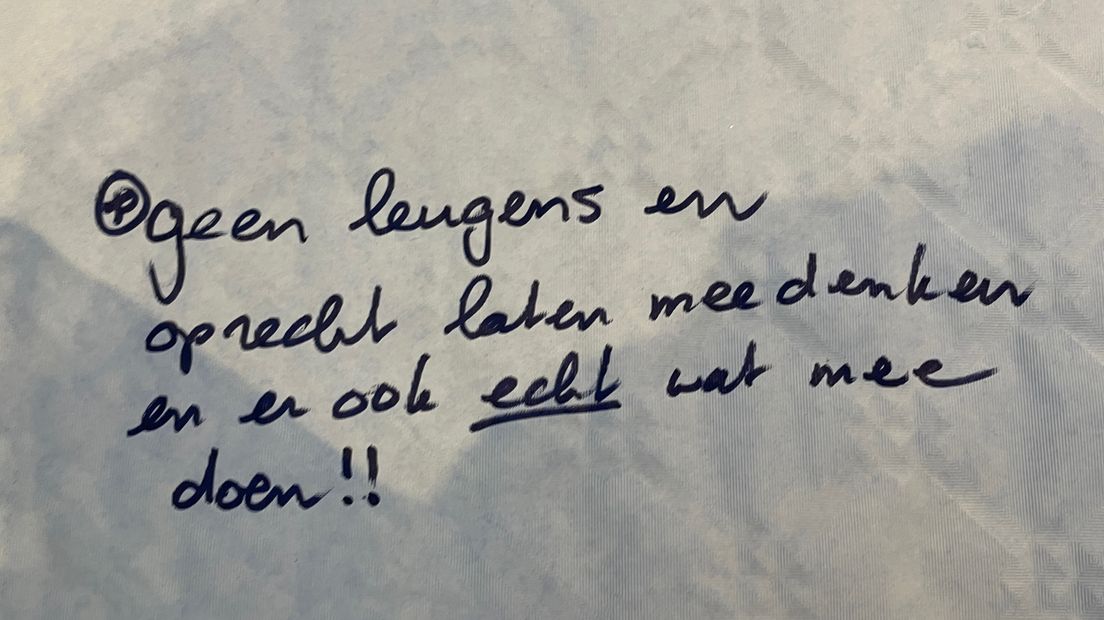 ⊕ geen leugens en
oprecht laten meedenken
en er ook echt wat mee
doen!!